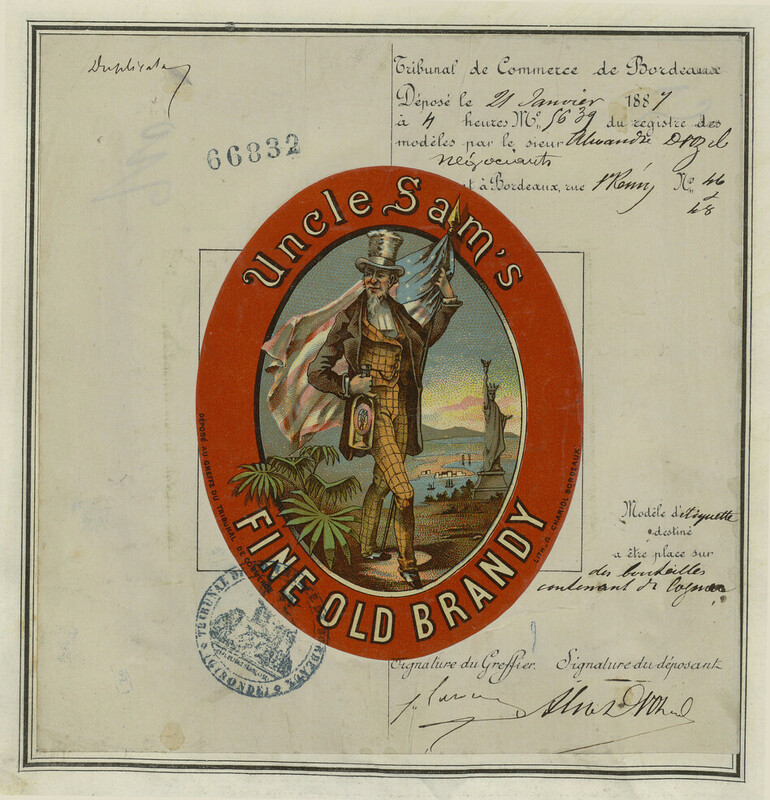 Duplicata
Tribunal de Commerce de Bordeaux
Déposé le 21 Janvier 1887
à 4 heures Mº 5639 du registre des
modèles par le sieur
négociants
et à Bordeaux, rue St Rémy Nº 46
48
66832
Uncle Sam's
DÉPOSÉ AU GREFFE DU TRIBUNAL DE COMMERCE
LITH. G. CHARIOL BORDEAUX
FINE OLD BRANDY
Modèle d'étiquette
destiné
a être place sur
des bouteilles
contenant du Cognac
TRIBUNAL DE
BORDEAUX
(GIRONDE)
Signature du Greffier. Signature du déposant